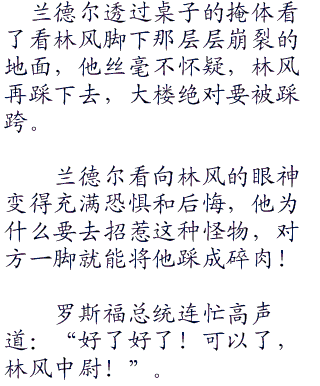 兰德尔透过桌子的掩体看
了看林风脚下那层层崩裂的
地面，他丝毫不怀疑，林风
再踩下去，大楼绝对要被踩
跨。
兰德尔看向林风的眼神
变得充满恐惧和后悔，他为
什么要去招惹这种怪物，对
方一脚就能将他踩成碎肉！
罗斯福总统连忙高声
道：“好了好了！可以了，
林风中尉！”。